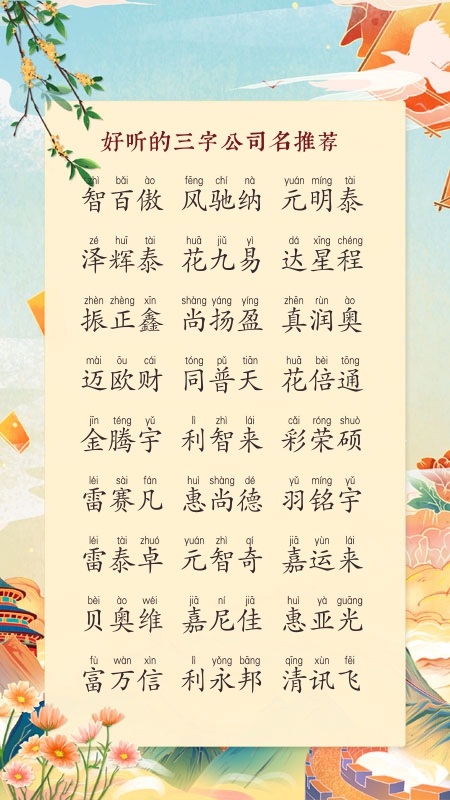 好听的三字公司名推荐
zhì bǎi ào fēng chí nà yuán míng tài
智百傲 风驰纳 元明泰
zé huī tài huā jiǔ yì dá xīng chéng
泽辉泰 花九易 达星程
zhèn zhèng xīn shàng yáng yíng zhēn rùn ào
振正鑫 尚扬盈 真润奥
mài ōu cái tóng pǔ tiān huā bèi tōng
迈欧财 同普天 花倍通
jīn téng yǔ lì zhì lái cǎi róng shuò
金腾宇 利智来 彩荣硕
léi sài fán huì shàng dé yǔ míng yǔ
雷赛凡 惠尚德 羽铭宇
léi tài zhuó yuán zhì qí jiā yùn lái
雷泰卓 元智奇 嘉运来
bèi ào wéi jiā ní jiā huì yà guāng
贝奥维 嘉尼佳 惠亚光
fù wàn xìn lì yǒng bāng qīng xùn fēi
富万信 利永邦 清讯飞